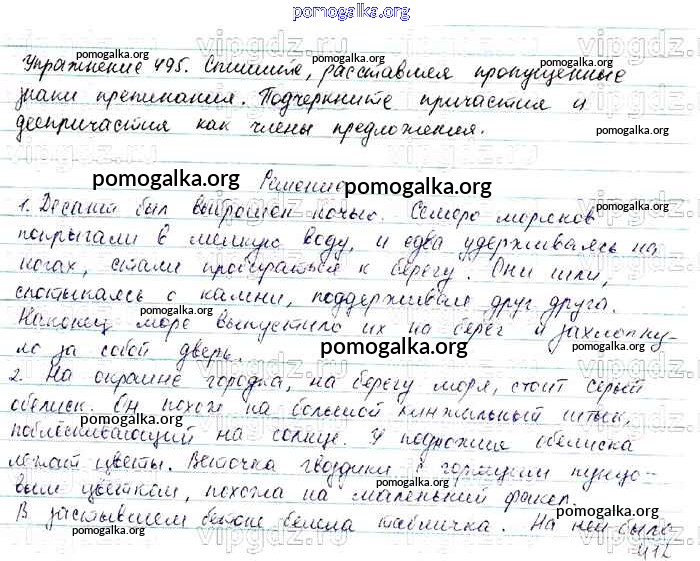 pomogalka.org
Упражнение 495. Спишите, расставляя пропущенные
знаки препинания. Подчеркните причастия и
деепричастия как члены предложения.
Решение
1. Десант был выброшен ночью. Семеро моряков
попрыгали в мелкую воду, и едва удерживаясь на
ногах, стали пробираться к берегу. Они шли,
спотыкаясь о камни, поддерживая друг друга.
Наконец море выпустило их на берег и захлопну-
ло за собой дверь.
2. На окраине городка, на берегу моря, стоит серый
обелиск. Он похож на большой кинжальный штык,
поблескивающий на солнце. У подножия обелиска
лежат цветы. Веточка гвоздики с горящим пунцо-
вым цветком, похожа на маленький факел.
В застывшем бетоне белела табличка. На ней было
412